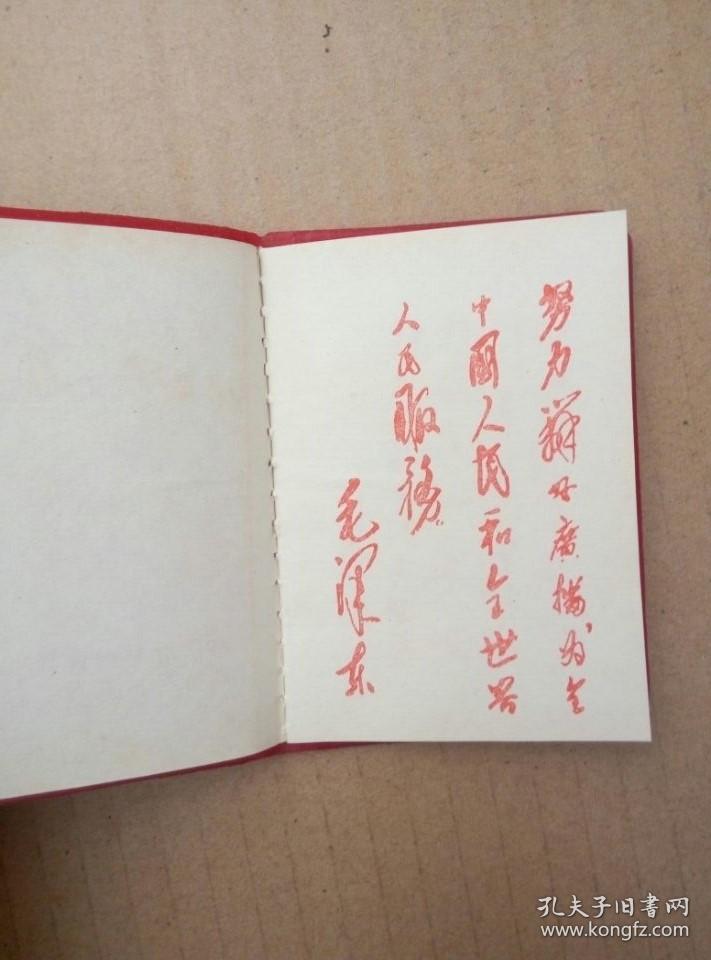 努力辦好廣播，为全
中國人民和全世界
人民服務。
毛澤东
孔夫子旧书网
www.kongfz.com